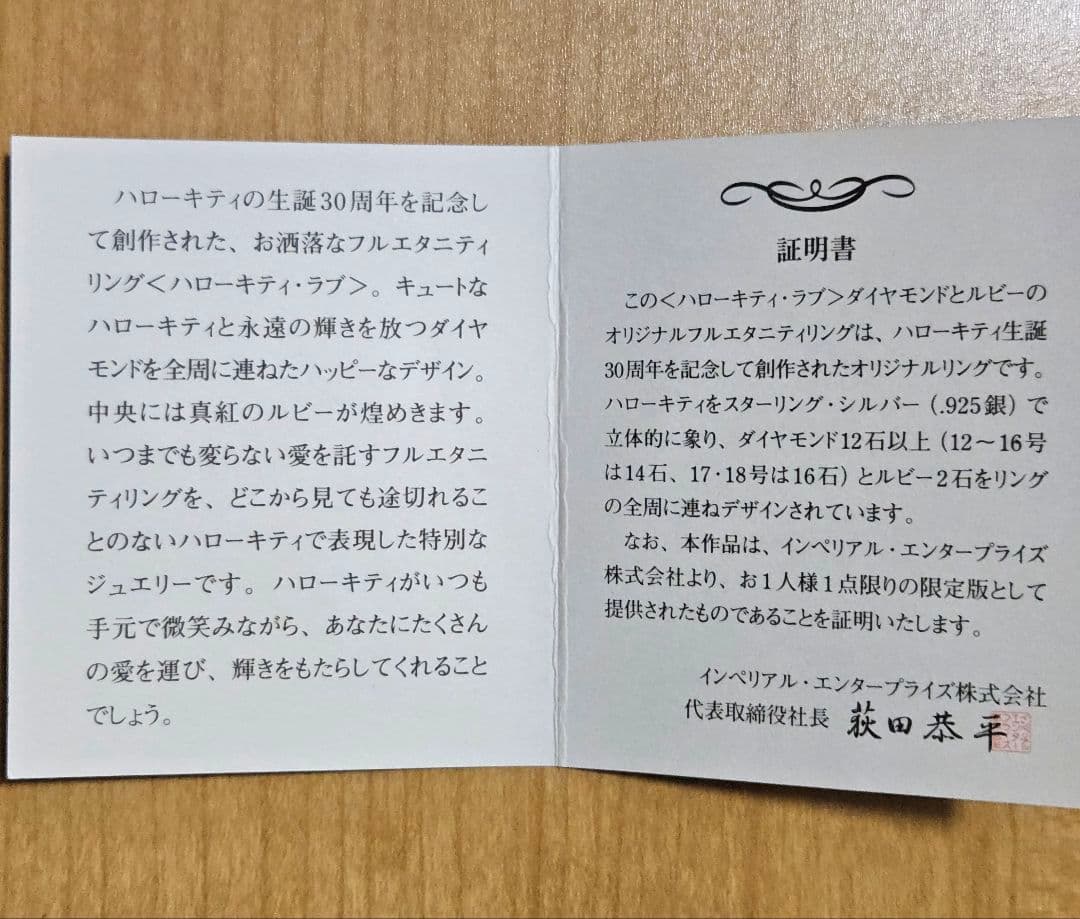 ハローキティの生誕30周年を記念し
て創作された、お洒落なフルエタニティ
リング＜ハローキティ・ラブ＞。キュートな
ハローキティと永遠の輝きを放つダイヤ
モンドを全周に連ねたハッピーなデザイン。
中央には真紅のルビーが煌めきます。
いつまでも変らない愛を託すフルエタニ
ティリングを、どこから見ても途切れるこ
とのないハローキティで表現した特別な
ジュエリーです。ハローキティがいつも
手元で微笑みながら、あなたにたくさん
の愛を運び、輝きをもたらしてくれること
でしょう。
証明書
この＜ハローキティ・ラブ＞ダイヤモンドとルビーの
オリジナルフルエタニティリングは、ハローキティ生誕
30周年を記念して創作されたオリジナルリングです。
ハローキティをスターリング・シルバー（.925銀）で
立体的に象り、ダイヤモンド12石以上（12～16号
は14石、17・18号は16石）とルビー2石をリング
の全周に連ねデザインされています。
なお、本作品は、インペリアル・エンタープライズ
株式会社より、お1人様1点限りの限定版として
提供されたものであることを証明いたします。
インペリアル・エンタープライズ株式会社
代表取締役社長 荻田恭平